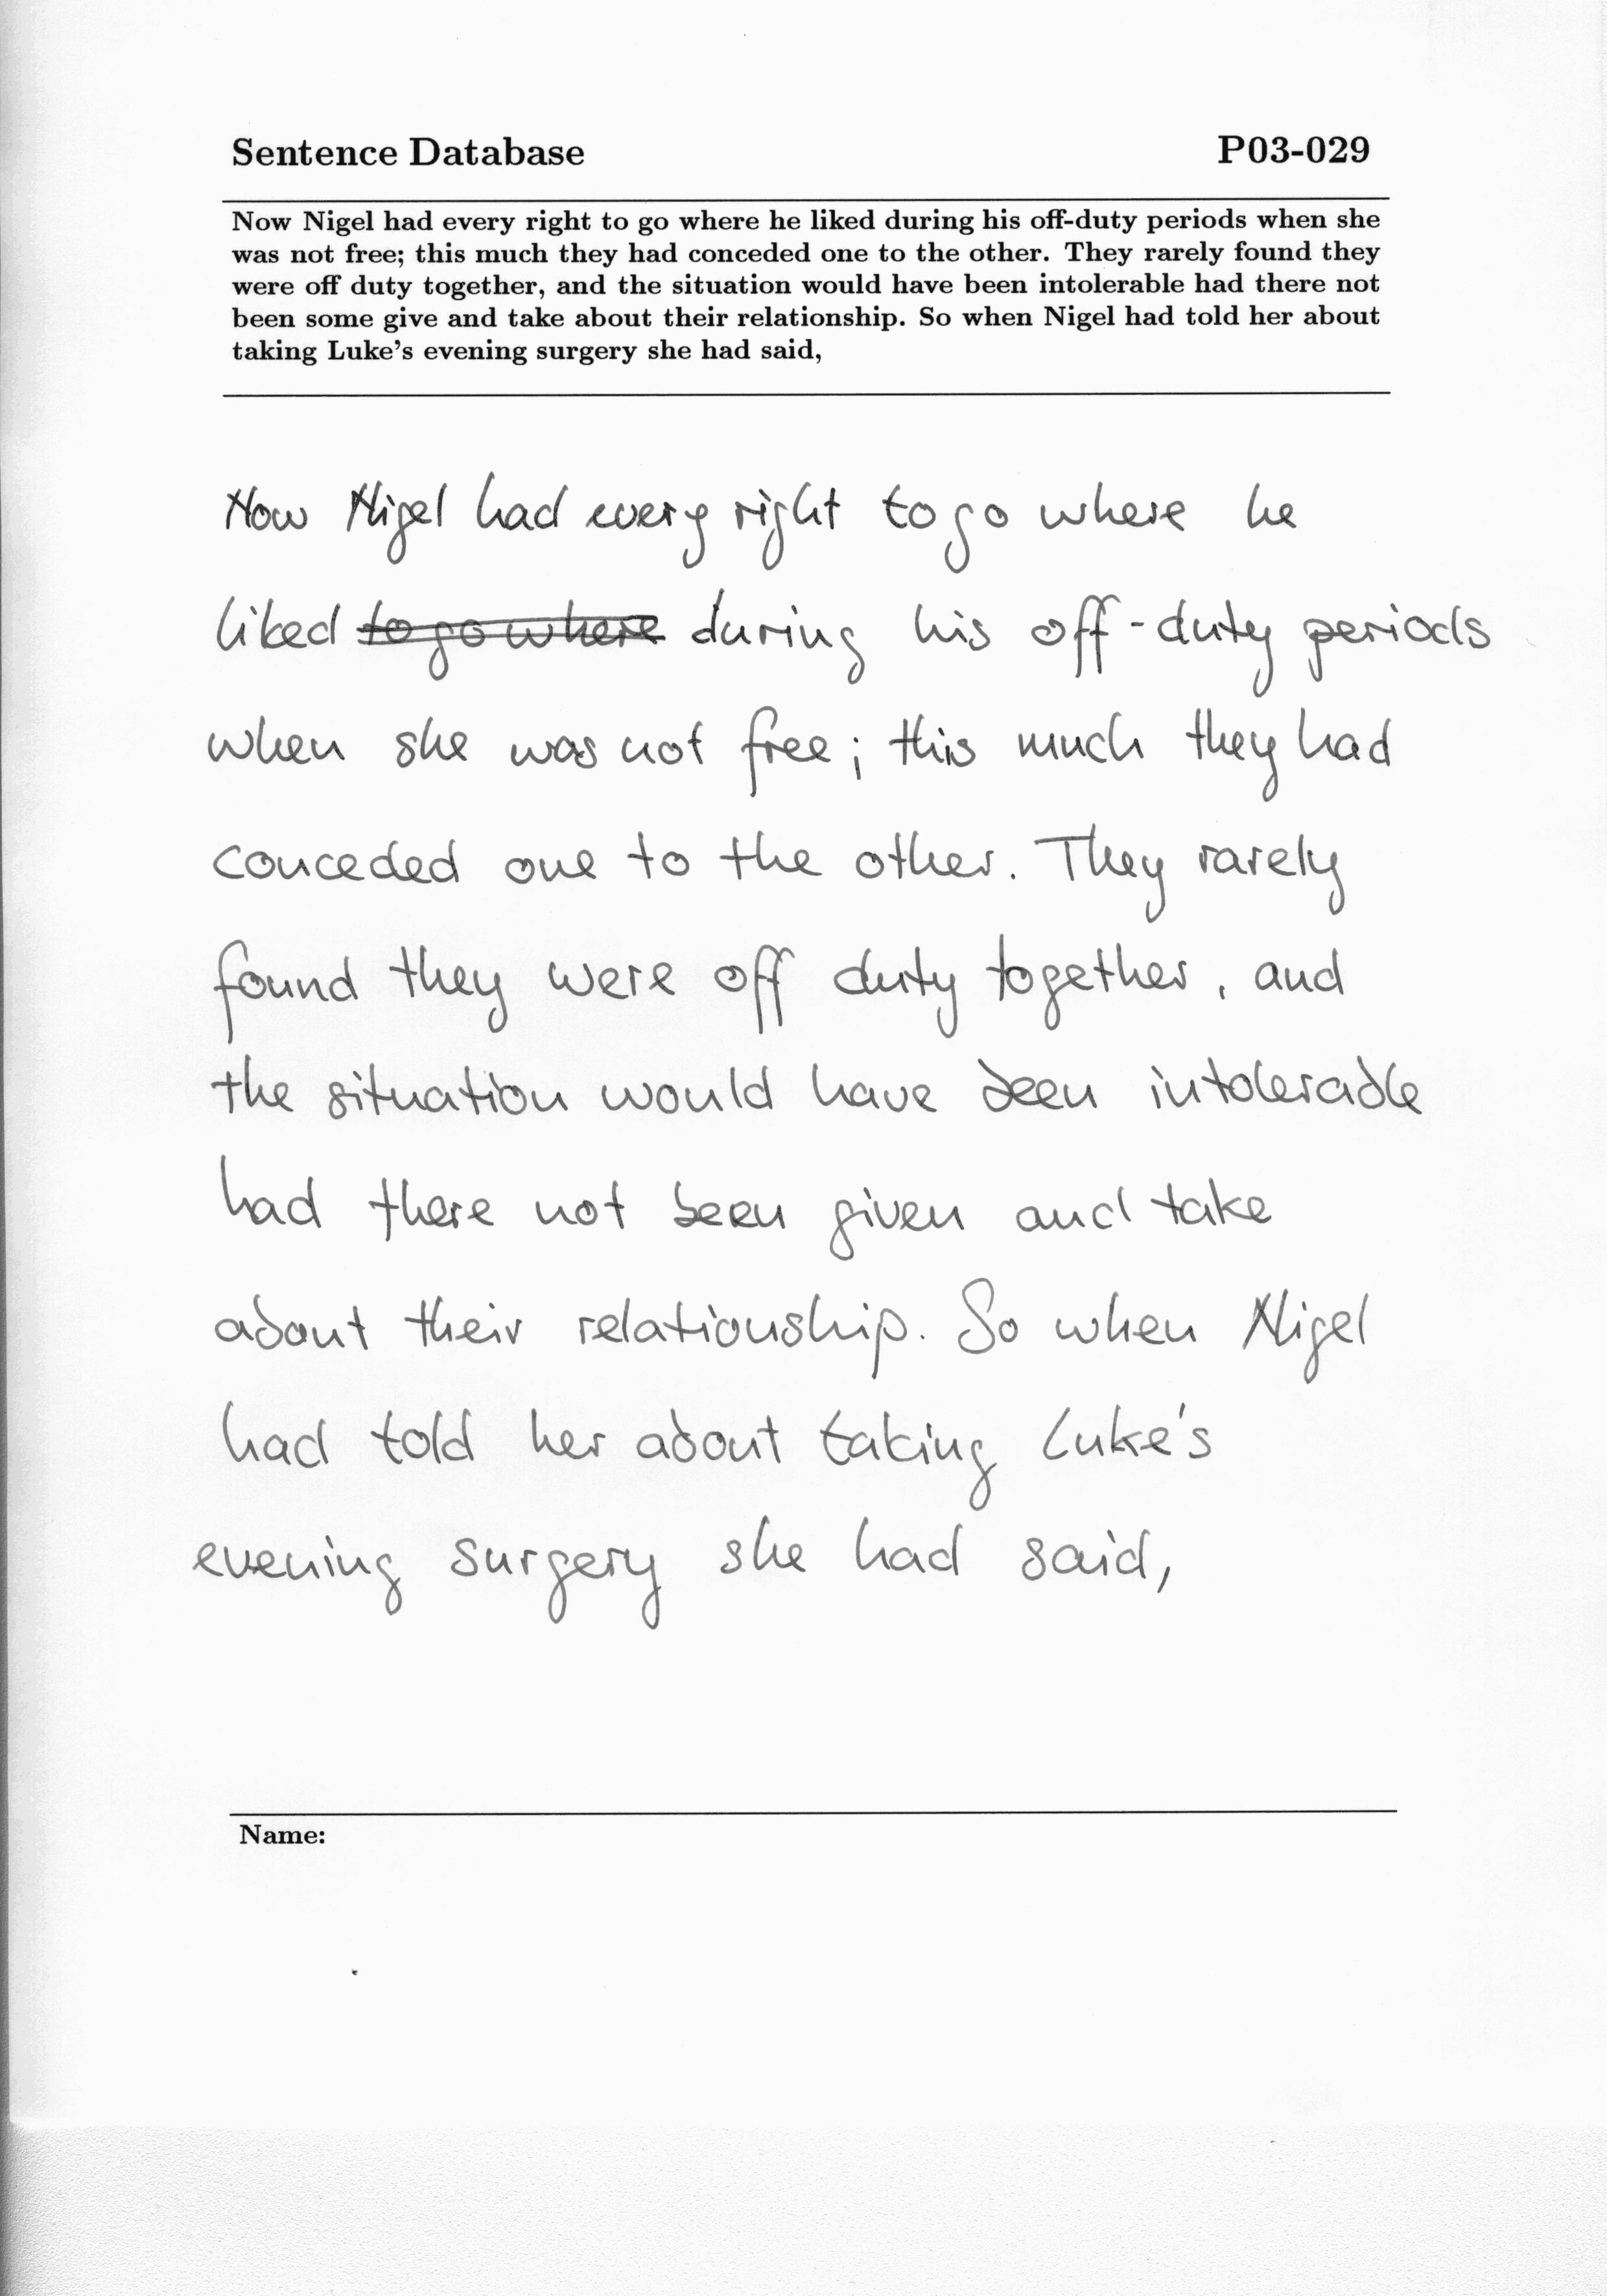 Sentence Database P03-029
Now Nigel had every right to go where he liked during his off-duty periods when she
was not free; this much they had conceded one to the other. They rarely found they
were off duty together, and the situation would have been intolerable had there not
been some give and take about their relationship. So when Nigel had told her about
taking Luke's evening surgery she had said,
Now Nigel had every right to go where he
liked to go where during his off-duty periods
when she was not free; this much they had
conceded one to the other. They rarely
found they were off duty together, and
the situation would have been intolerable
had there not been given and take
about their relationship. So when Nigel
had told her about taking Luke's
evening surgery she had said,
Name: